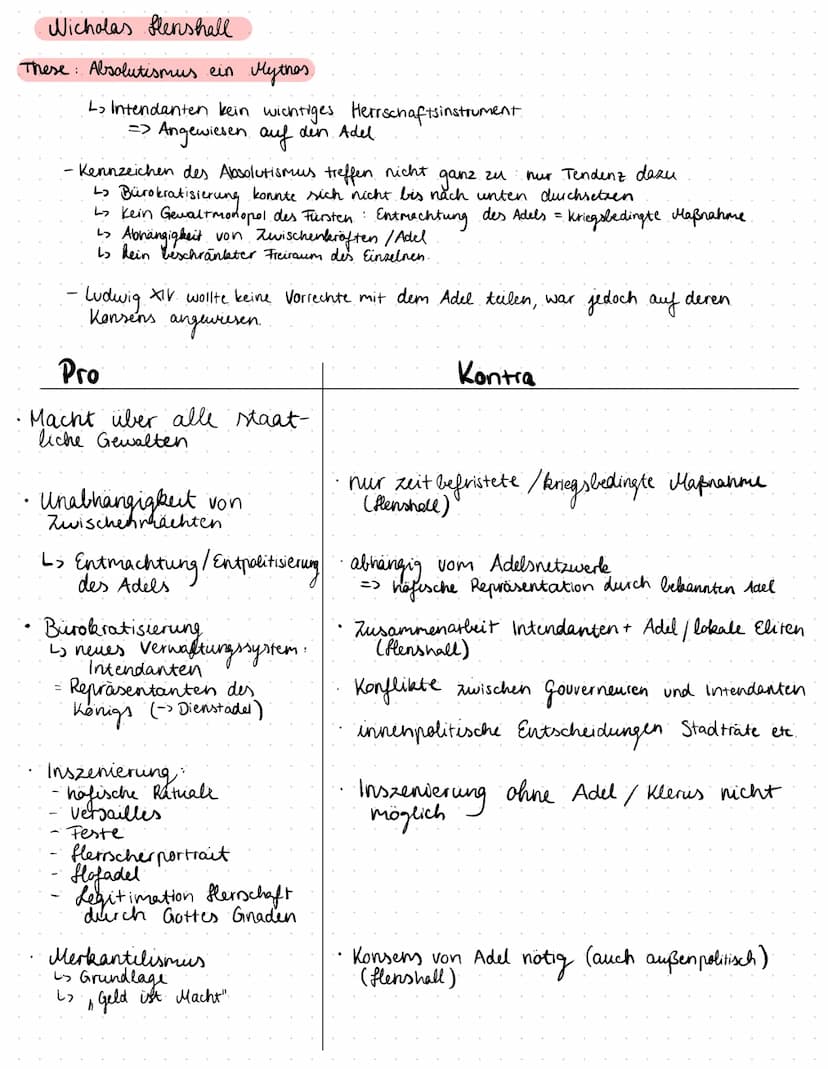 Nicholas Henshall
These: Absolutismus ein Mythos
↳ Intendanten kein wichtiges Herrschaftsinstrument
=> Angewiesen auf den Adel
- Kennzeichen des Absolutismus treffen nicht ganz zu: nur Tendenz dazu
↳ Bürokratisierung konnte sich nicht bis nach unten durchsetzen
↳ Kein Gewaltmonopol des Fürsten: Entmachtung des Adels = kriegsbedingte Maßnahme
↳ Abhängigkeit von Zwischenkräften/Adel
↳ Kein beschränkter Freiraum des Einzelnen.
- Ludwig XIV. wollte keine Vorrechte mit dem Adel teilen, war jedoch auf deren
Konsens angewiesen.
Pro
· Macht über alle staat-
liche Gewalten
· Unabhängigkeit von
Zwischenmächten
↳ Entmachtung/Entpolitisierung
des Adels
· Bürokratisierung
↳ neues Verwaltungssystem:
Intendanten
= Repräsentanten des
Königs (-> Dienstadel)
· Inszenierung:
- höfische Rituale
- Versailles
- Feste
- Herrscherportrait
- Hofadel
- Legitimation Herrschaft
durch Gottes Gnaden
· Merkantilismus
↳ Grundlage
↳ „Geld ist Macht"
Kontra
· nur zeitbefristete/kriegsbedingte Maßnahme
(Henshall)
· abhängig vom Adelsnetzwerk
=> höfische Repräsentation durch bekannten Adel
· Zusammenarbeit Intendanten + Adel/lokale Eliten
(Henshall)
· Konflikte zwischen Gouverneuren und Intendanten
· innenpolitische Entscheidungen Stadträte etc.
· Inszenierung ohne Adel / Klerus nicht
möglich
· Konsens von Adel nötig (auch außenpolitisch)
(Henshall)